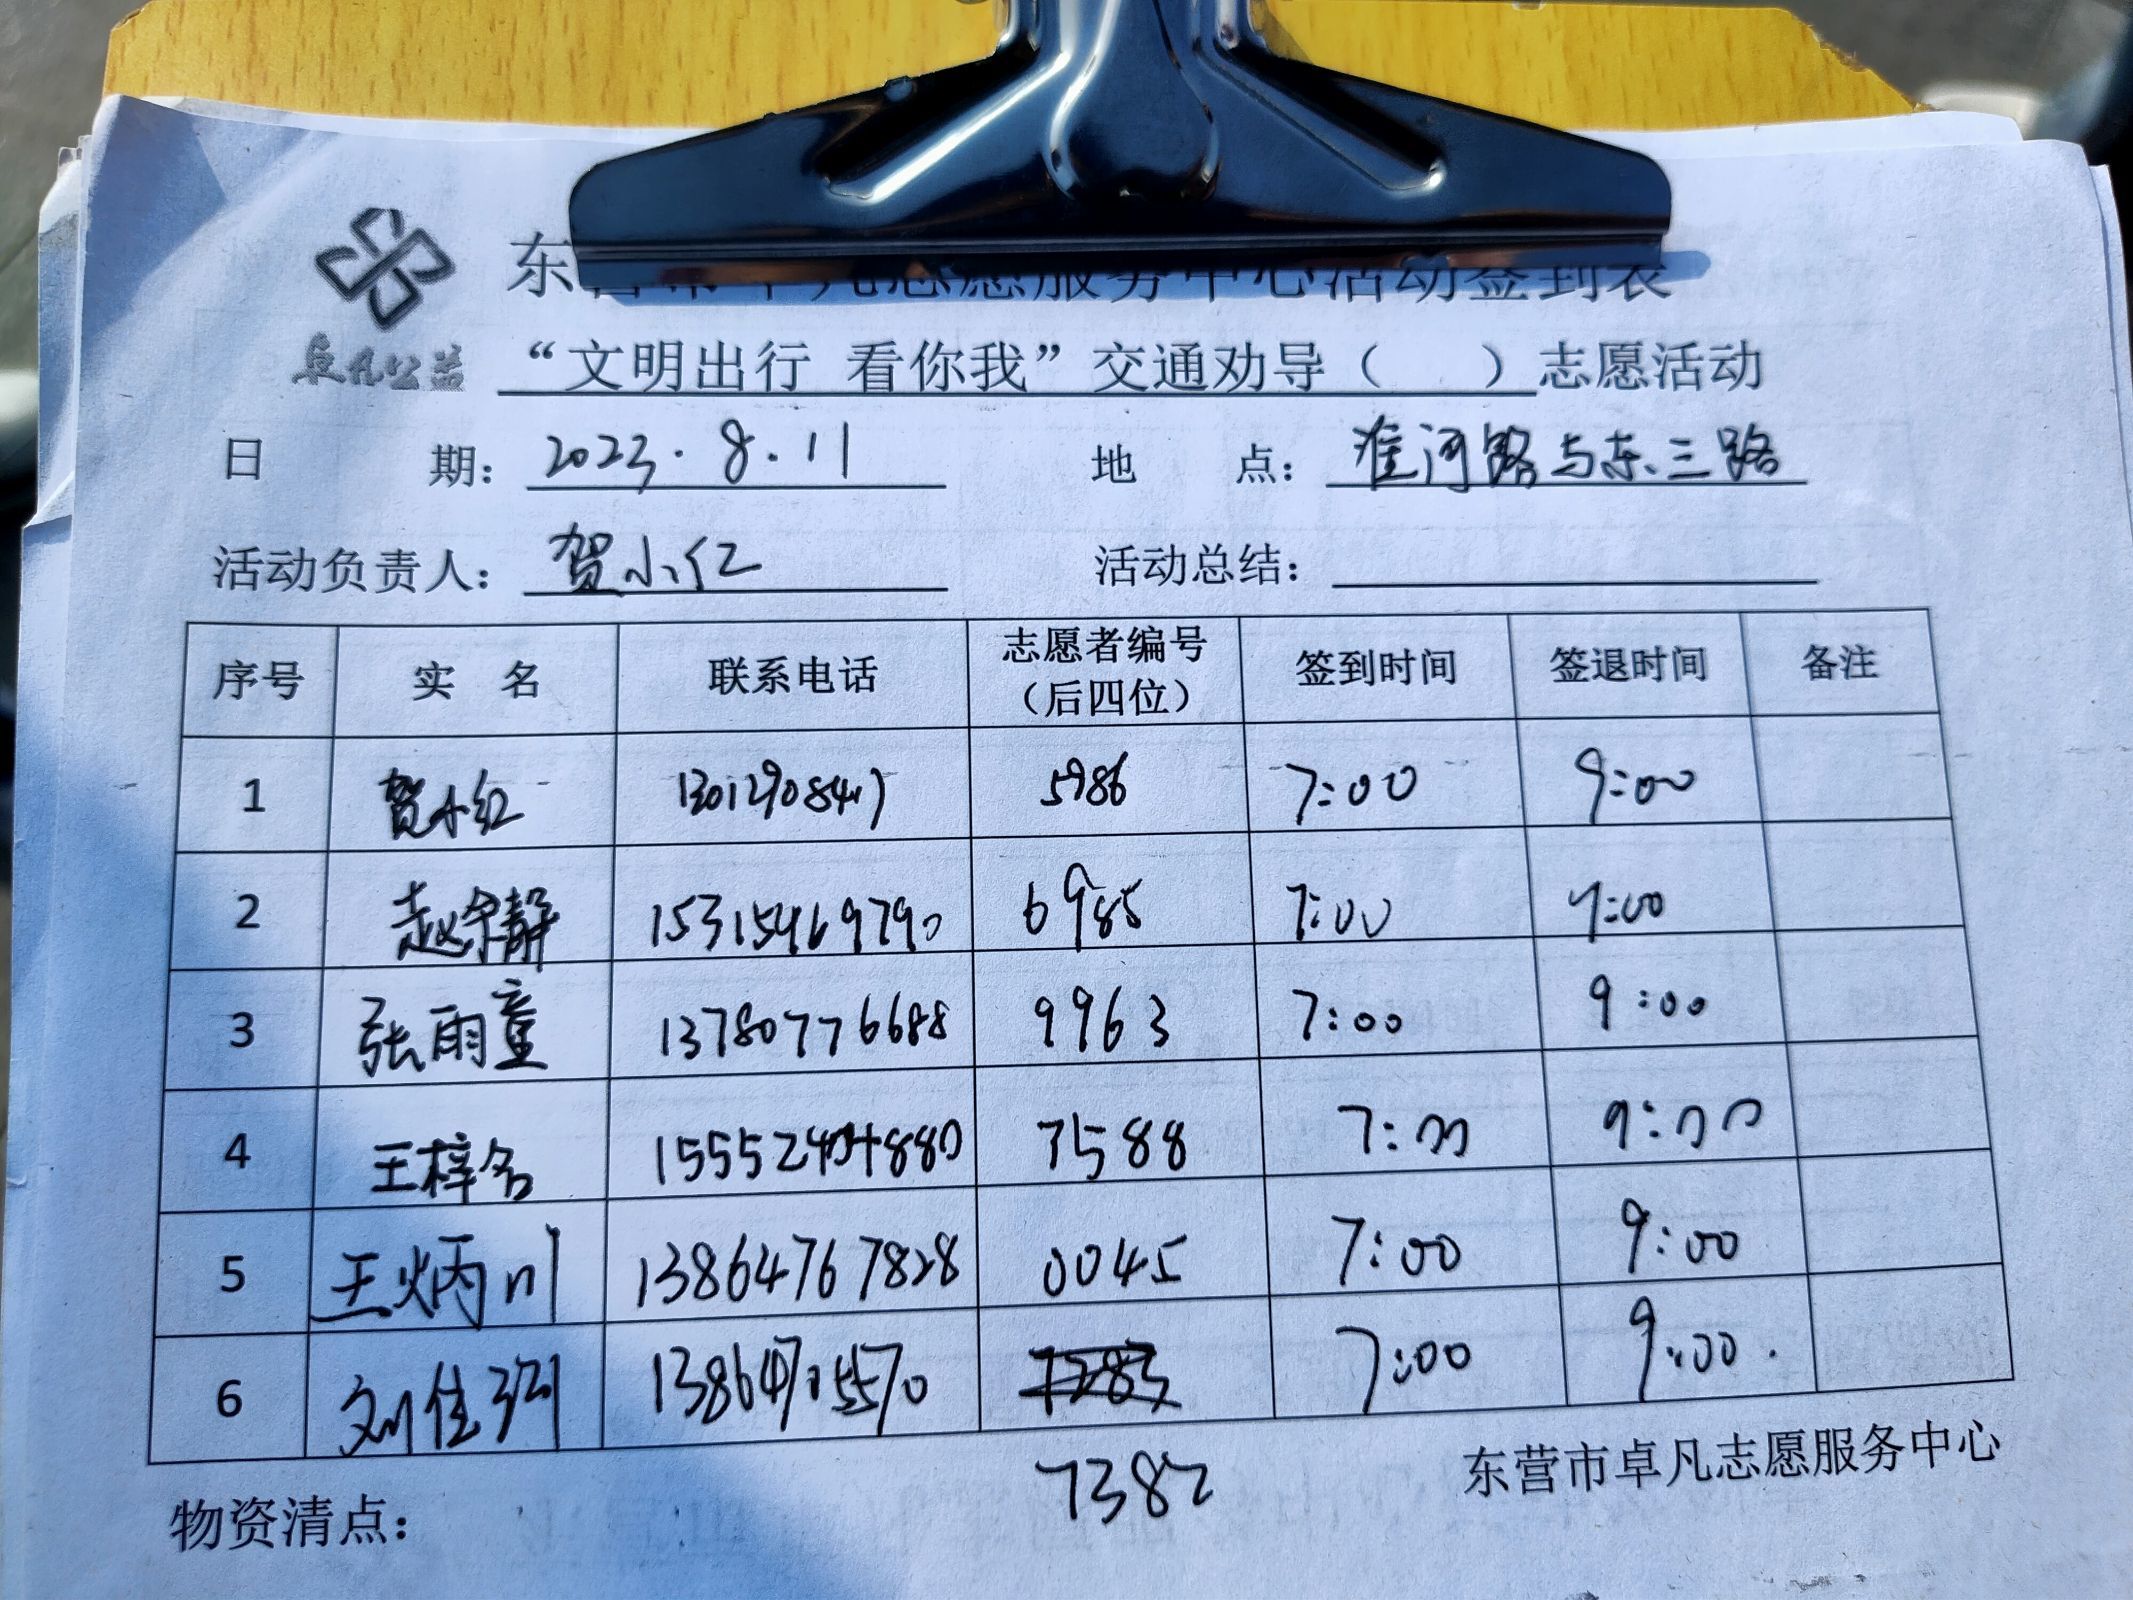 东营市卓凡志愿服务中心活动签到表
卓凡公益
“文明出行 看你我”交通劝导（ ）志愿活动
日 期：2023.8.11 地 点：淮河路与东三路
活动负责人：贺小红 活动总结：
序号 实 名 联系电话 志愿者编号（后四位） 签到时间 签退时间 备注
1 贺小红 5986 7:00 9:00
2 15315469790 6985 7:00 9:00
3 张雨童 13780776688 9963 7:00 9:00
4 王梓名 7588 7:00 9:00
5 王炳川 13864767828 0045 7:00 9:00
6 刘佳 7:00 9:00.
7382
东营市卓凡志愿服务中心
物资清点：